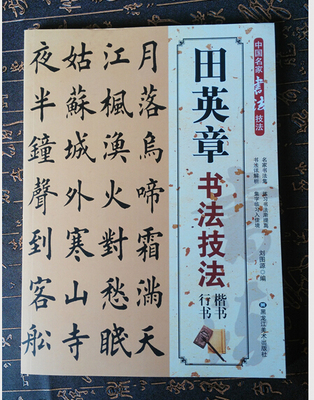 月落烏啼霜滿天
江楓漁火對愁眠
姑蘇城外寒山寺
夜半鐘聲到客船
中国名家书法技法
田英章
书法技法
楷书
行书
刘国源 编
黑龙江美术出版社